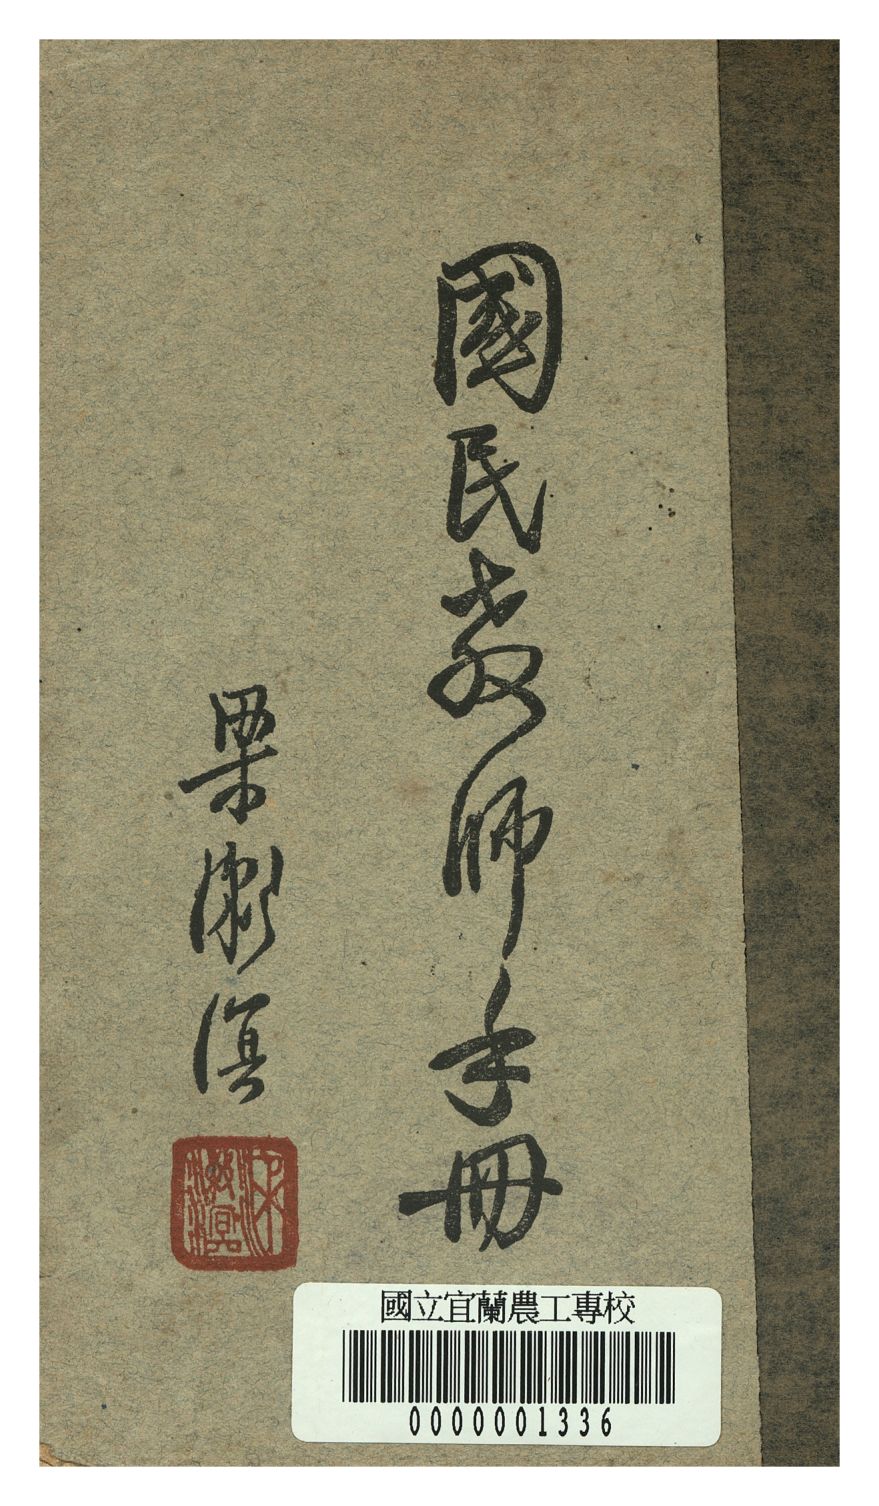 國民教師手冊
梁漱溟
國立宜蘭農工專校
0000001336